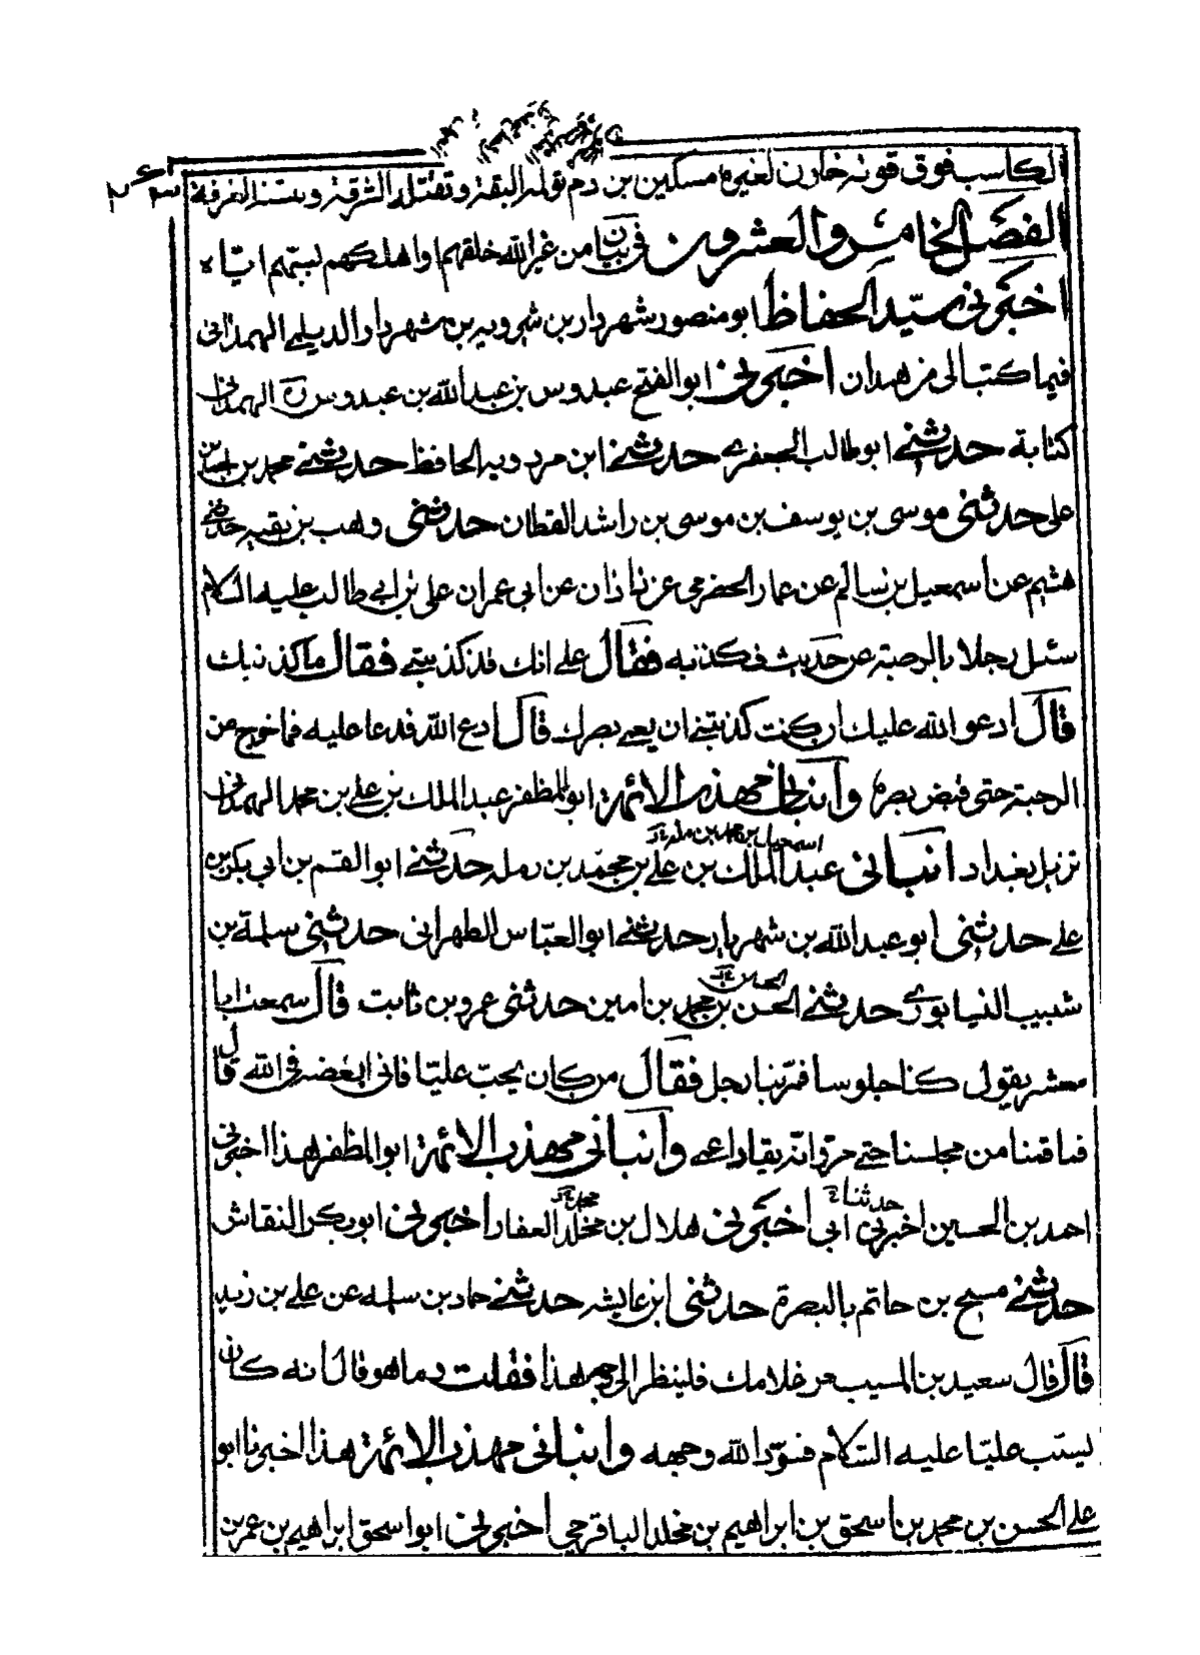 الكاسب فوق قوته خازن لغيره مسكين بن دم تولمه البقة وتقتله الشرقة وينتنه العرقة
الفصل الخامس والعشرون في بيان من غير الله خلقهم واهلكهم لسبهم اياه
اخبرني سيد الحفاظ ابو منصور شهردار بن شيرويه بن شهردار الديلمي الهمداني
فيما كتب الى من همدان اخبرني ابو الفتح عبدوس بن عبد الله بن عبدوس الهمداني
كتابة حدثني ابو طالب الجعفري حدثني ابن مردويه الحافظ حدثني محمد بن الحسين بن
علي حدثني موسى بن يوسف بن موسى بن راشد القطان حدثني وهب بن بقيه حدثني
هشيم عن اسمعيل بن سالم عن عمار الحضرمي عن زاذان عن ابي عمران علي بن ابي طالب عليه السلام
سئل رجلا بالرحبة عن حديث فكذبه فقال علي انك قد كذبتني فقال ما كذبتك
قال ادعو الله عليك ان كنت كذبتني ان يعمي بصرك قال ادع الله فدعا عليه فما خرج من
الرحبة حتى قبض بصره وانباني مهذب الائمة ابو المظفر عبد الملك بن علي بن محمد الهمداني
اسمعيل بن محمد بن مله
نزيل بغداد انباني عبد الملك بن علي بن محمد بن رمله حدثني ابو القسم بن ابي بكر بن
علي حدثني ابو عبد الله بن شهريار حدثني ابو العباس الطهراني حدثني سلمة بن
الحسن بن
شبيب النيسابوري حدثني الحسن بن محمد بن امين حدثني عمرو بن ثابت قال سمعت ابا
معشر يقول كنا جلوسا فمر بنا رجل فقال من كان يحب عليا فاني ابغضه في الله قال
فما قمنا من مجلسنا حتى مر وانه يقاد اعمى وانباني مهذب الائمة ابو المظفر هذا اخبرني
حدثنا محمد
احمد بن الحسين اخبرني ابي اخبرني هلال بن مخلد العفار اخبرني ابو بكر النقاش
حدثني مسبح بن حاتم بالبصرة حدثني ابن عايشه حدثني حماد بن سلمه عن علي بن زيد
قال قال سعيد بن المسيب مر غلامك فلينظر الى وجه هذا فقلت وما هو قال انه كان
يسب عليا عليه السلام فسود الله وجهه وانباني مهذب الائمة هذا اخبرنا ابو
علي الحسن بن محمد بن اسحق بن ابراهيم بن مخلد الباقرحي اخبرني ابو اسحق ابراهيم بن عمر بن